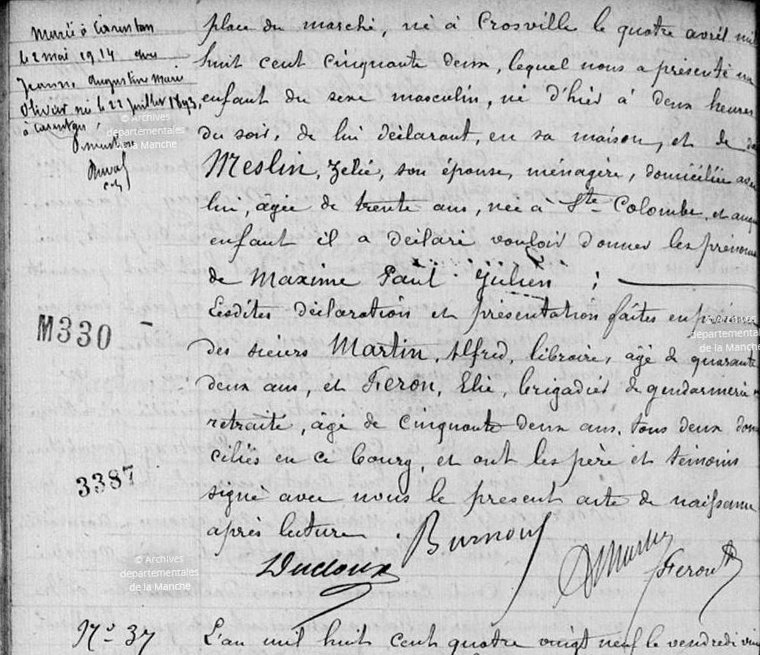 Marié à Carentan
le 2 mai 1914 avec
Jeanne Augustine Marie
Olivier née le 22 juillet 1893,
à Carentan,
Duval
place du marché, né à Crosville le quatre avril mil
huit cent cinquante deux, lequel nous a présenté un
enfant du sexe masculin, né d'hier à deux heures
du soir, de lui déclarant, en sa maison, et de
Meslin, Zélie, son épouse, ménagère, domiciliée avec
lui, agée de trente ans, née à Ste Colombe, et auquel
enfant il a déclaré vouloir donner les prénoms
de Maxime Paul Julien ;
Lesdites déclaration et présentation faites en présence
des sieurs Martin, Alfred, libraire, agé de quarante
deux ans, et Feron, Elie, brigadier de gendarmerie en
retraite, agé de cinquante deux ans, tous deux domi
ciliés en ce bourg, et ont les père et témoins
signé avec nous le présent acte de naissance
après lecture.
Burnouf
Ducloux
AMartin
Feron
M330 -
3387
N° 37
L'an mil huit cent quatre vingt neuf le vendredi
© Archives
départementales
de la Manche
© Archives
départementales
de la Manche
© Archives
départementales
de la Manche